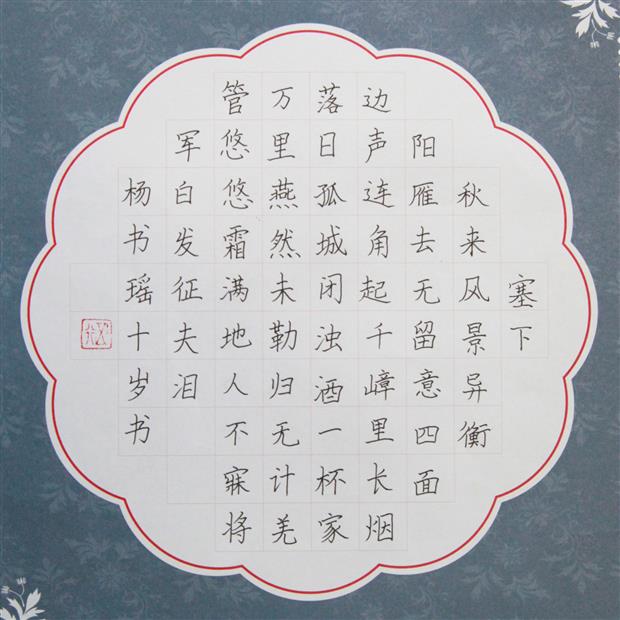 塞下
秋来风景异衡
阳雁去无留意四面
边声连角起千嶂里长烟
落日孤城闭浊酒一杯家
万里燕然未勒归无计羌
管悠悠霜满地人不寐将
军白发征夫泪
杨书瑶十岁书